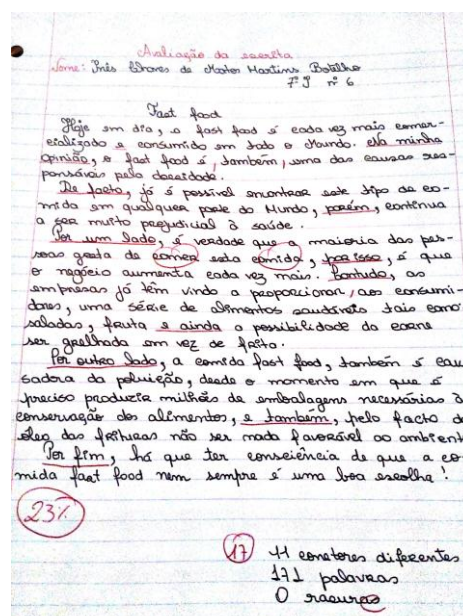 Avaliação da escrita
Nome: Inês de Martins Botelho
7º J nº 6
Fast food
Hoje em dia, o fast food é cada vez mais comer-
cializado e consumido em todo o Mundo. Na minha
opinião, o fast food é, também, uma das causas res-
ponsáveis pela obesidade.
De facto, já é possível encontrar este tipo de co-
mida em qualquer parte do Mundo, porém, continua
a ser muito prejudicial à saúde.
Por um lado, é verdade que a maioria das pes-
soas gosta de comer esta comida, por isso, é que
o negócio aumenta cada vez mais. Contudo, as
empresas já têm vindo a proporcionar, aos consumi-
dores, uma série de alimentos saudáveis tais como
saladas, fruta e ainda a possibilidade da carne
ser grelhada em vez de frita.
Por outro lado, a comida fast food, também é cau
sadora da poluição, desde o momento em que é
preciso produzir milhões de embalagens necessárias à
conservação dos alimentos, e também, pelo facto do
óleo das frituras não ser nada favorável ao ambient
Por fim, há que ter consciência de que a co-
mida fast food nem sempre é uma boa escolha!
23%
17 11 conetores diferentes
171 palavras
0 rasuras